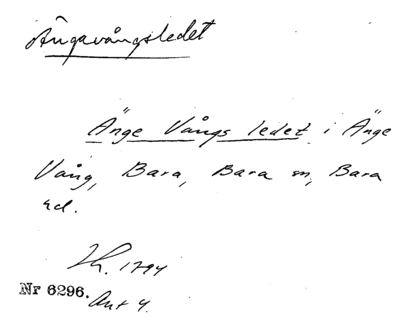 Ängavångsledet
Änge Vångs ledet i Änge
Vång, Bara, Bara sn, Bara
hd.
1794
Nr 6296. Akt 4.